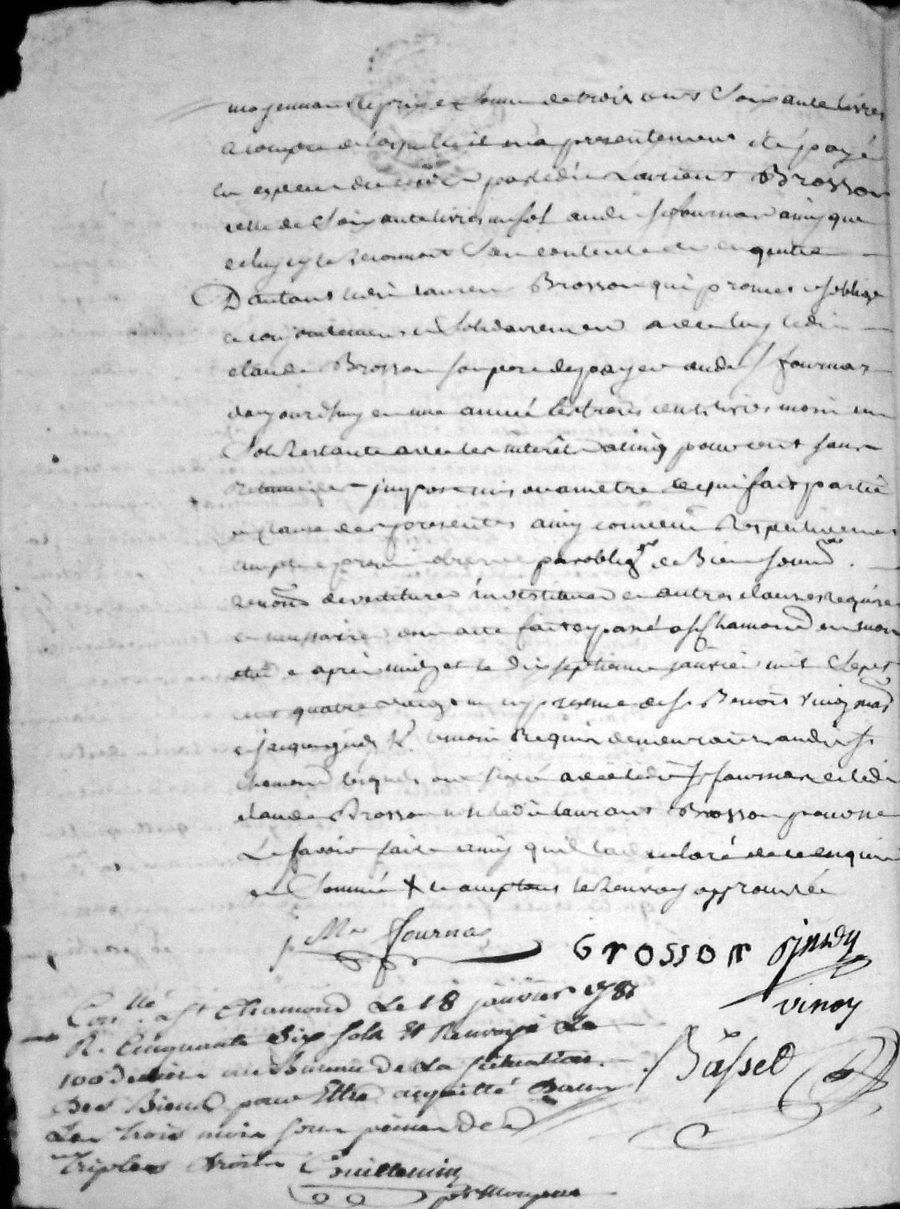 moyennant le prix et somme de trois cents soixante livres
a compte de laquelle il en a presentement été payé
en especes du cours par ledit Laurent Brosson
celle de soixante livres un sol audit Sr fournas ainsy que
celuy cy le reconnoit s'en contente et en quitte
Dautant ledit Laurent Brosson qui promet et s'oblige
conjointement et solidairement avec luy ledit
claude Brosson son pere de payer audit Sr fournas
daujourdhuy en une année les trois cents livres moin un
sol Restante avec les interêt a cinq pour cent sans
Retenue imposé mis ou a mêtre ce qui fait partie
et clause des presentes ainsy convenu Respectivement
par oblig.on de Biens soum.on
Renon.on devetitures investitures et autres clauses Requises
et necessaires dont acte fait et passé a St Chamond en mon
etude apres midy le dix septieme janvier mil sept
cent quatre vingt un en presence de Sr Benoit Vinoy mar.d
temoins Requis demeurants audit St
chamond lesquels ont signé avec ledit Sr fournas et ledit
claude Brosson non ledit laurent Brosson pour ne
Le savoir faire ainsy qu'il l'a declaré de ce enquis
et sommé X le renvoy approuvée
j Me fournas
Grosson
vinoy
Basset
Con.llé a St Chamond Le 18 janvier 1781
R. Cinquante Six sols Et Renvoyé La
100 Deniere au Bureau de La situation
Des Biens pour Etre acquitté Dans
Les Trois mois sous peine de
Triples droits